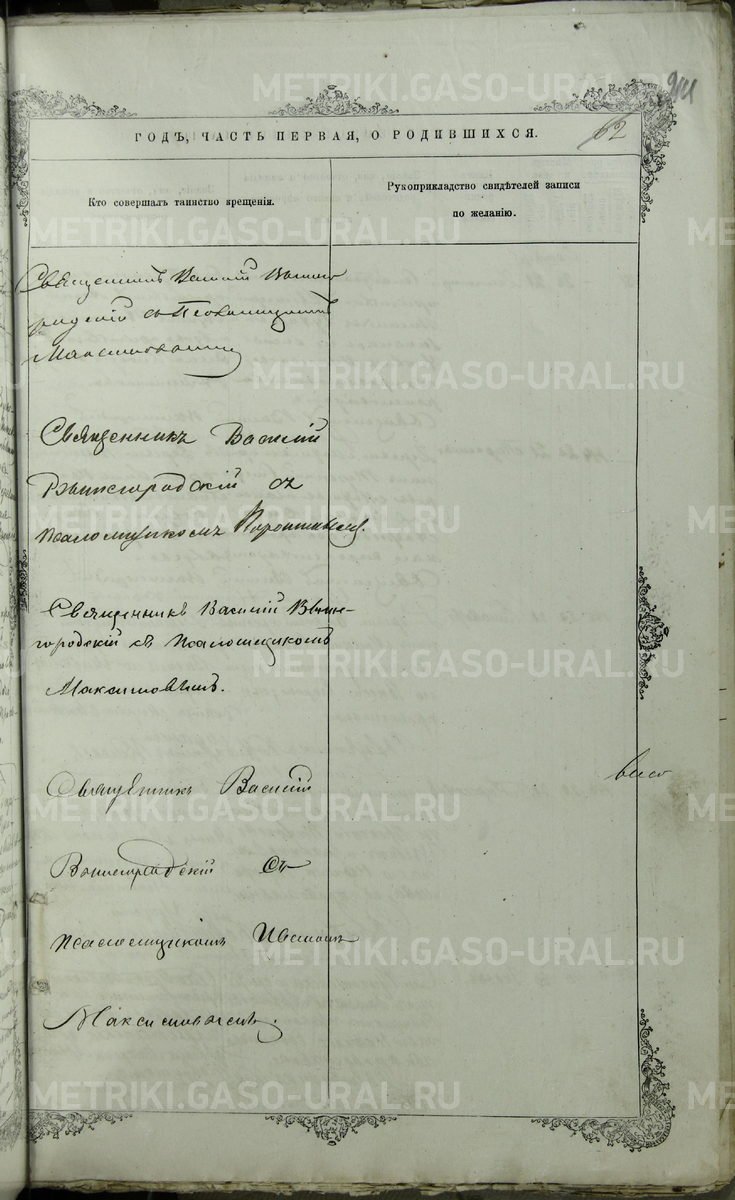 62
ГОДЪ, ЧАСТЬ ПЕРВАЯ, О РОДИВШИХСЯ.
Кто совершалъ таинство крещенія.
Рукоприкладство свидѣтелей записи
по желанію.
Священникъ Василій Винно
градскій съ Псаломщикомъ
Максимовымъ
Священникъ Василій
Виноградскій съ
псаломщикомъ
Священникъ Василій Вин-
городскій съ Псаломщикомъ
Максимовымъ.
Священникъ Василій
Виноградскій Съ
псаломщикомъ Иваномъ
Максимовымъ.
METRIKI.GASO-URAL.RU